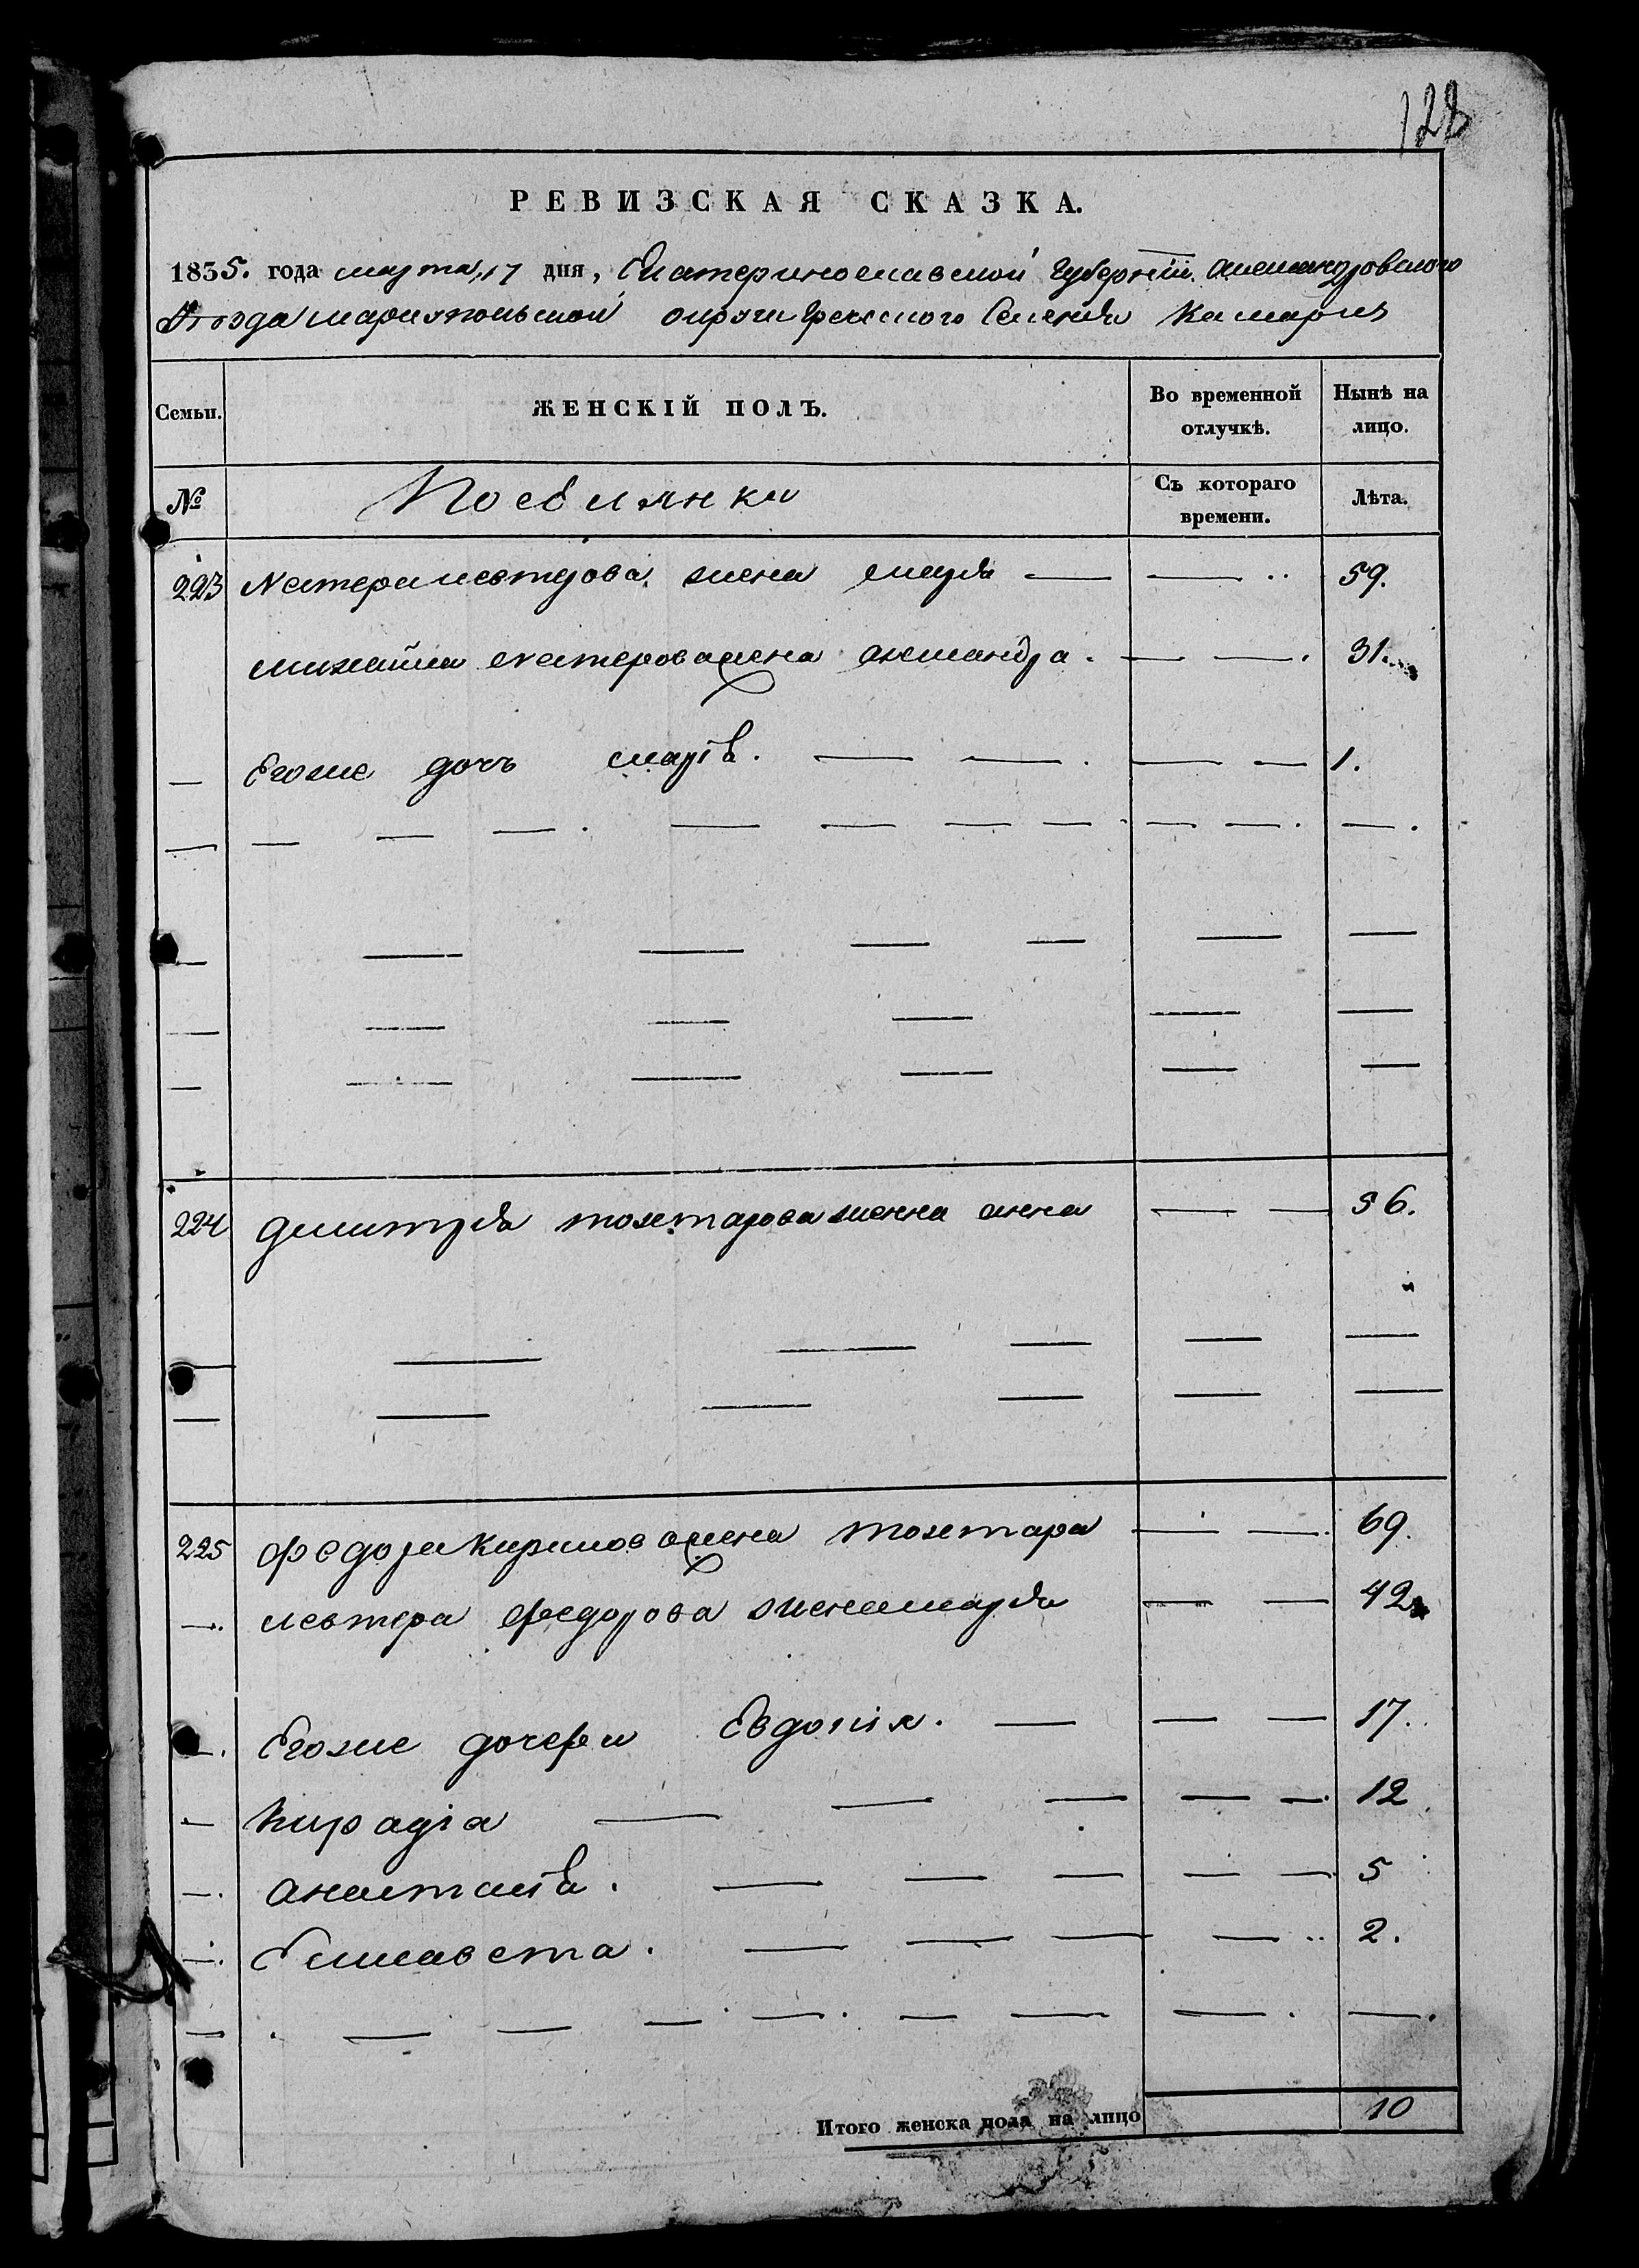 128
РЕВИЗСКАЯ СКАЗКА.
1835. года марта 17 дня, Екатеринославской Губерніи Александровского
Уезда мариупольской округи греческого Селенія Камары
Семьи. ЖЕНСКІЙ ПОЛЪ. Во временной отлучкѣ. Нынѣ на лицо.
№ Поселянки Съ котораго времени. Лѣта.
223 левтерова жена марія — — 59.
михайла жена александра. — — 31.
— Егоже дочь марія. — — — — 1.
224 дмитрія тохтарова женна анна — — 56.
225 федора кирилова жена тохтара — — 69.
— левтера федорова жена марія — — 42
— Егоже дочери Евдокія. — — — 17.
— кирадіа — — — — — 12
— анастасія. — — — — — 5
— Елисавета. — — — — 2.
Итого женска пола на лицо 10